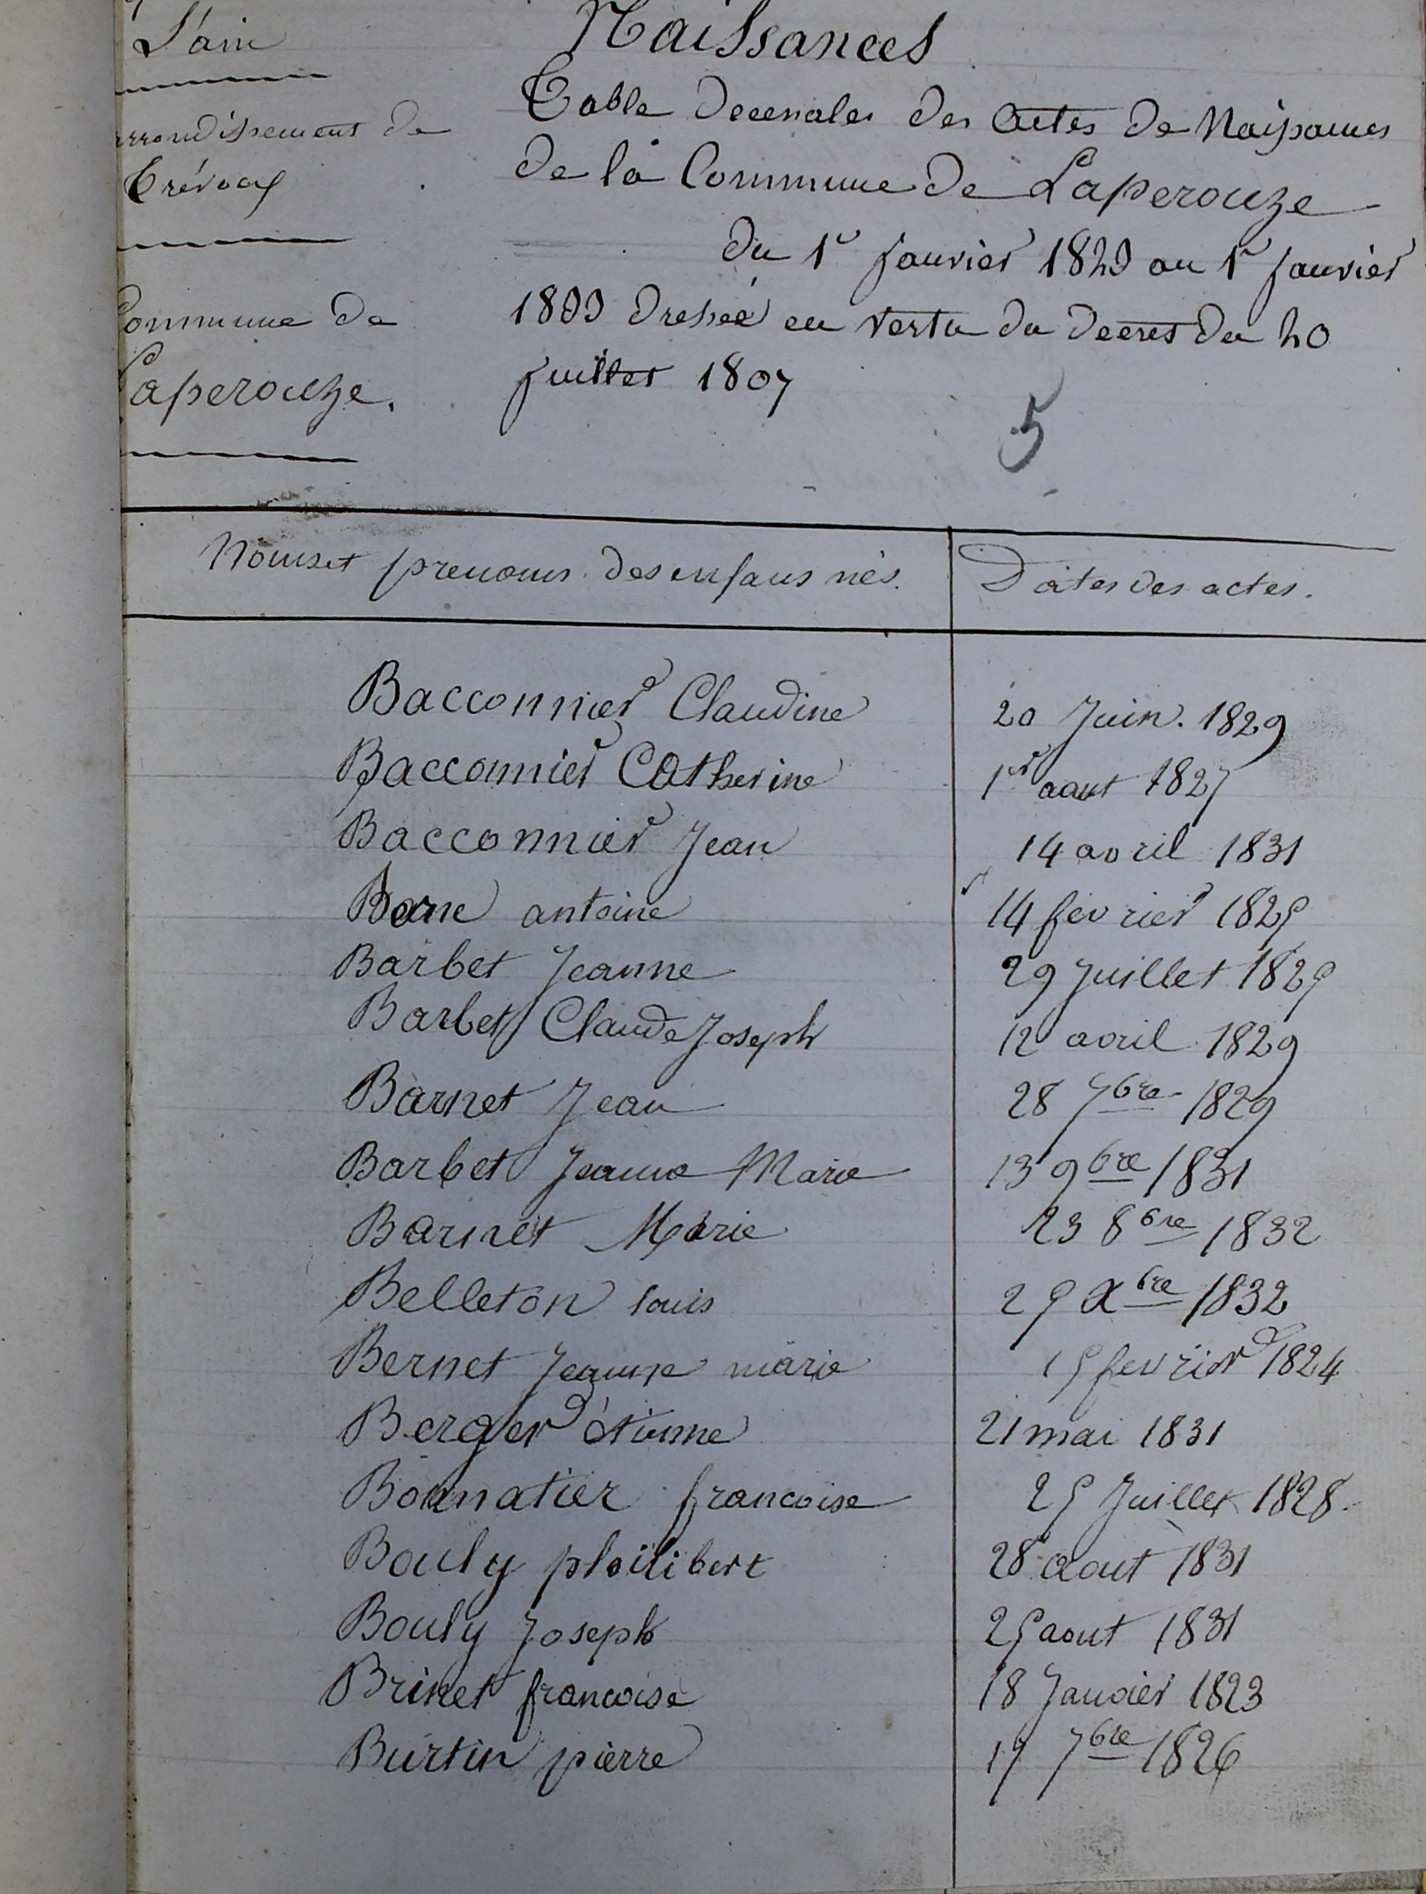 L'ain
arrondissement de
Trévoux
Commune de
Laperouze.
Naissances
Table decenales des actes de Naissances
de la Commune de Laperouze
du 1er janvier 1823 au 1er janvier
1833 dressée en vertu du decret du 20
juillet 1807
5
Noms et prenoms des enfans nés. Dates des actes.
Bacconnier Claudine 20 Juin. 1829
Bacconnier Catherine 1er aout 1827
Bacconnier Jean 14 avril 1831
antoine 14 fevrier 1825
Barbet Jeanne 29 Juillet 1825
Barbet Claude Joseph 12 avril 1829
Barnet Jean 28 7bre 1829
Barbet Jeanne Marie 13 9bre 1831
Barnet Marie 23 8bre 1832
Belleton louis 25 Xbre 1832
Bernet Jeanne marie 15 fevrier 1824
Berger étienne 21 mai 1831
Bonnatier francoise 25 Juillet 1828
Bouly philibert 28 aout 1831
Bouly Joseph 25 aout 1831
Brinet francoise 18 Janvier 1823
Burtin pierre 17 7bre 1826